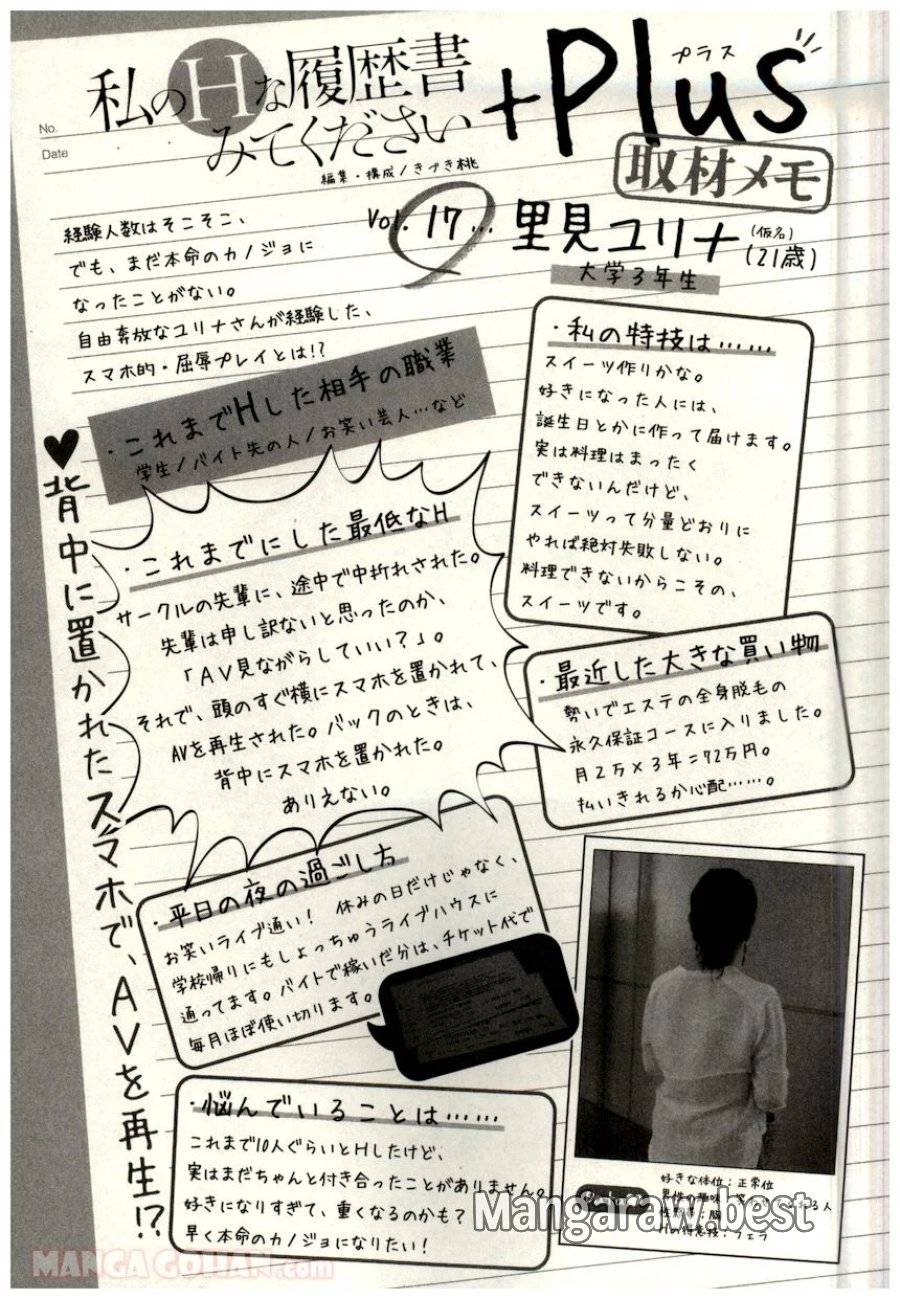 No.
Date
私のHな履歴書
みてください
+Plus
プラス
取材メモ
編集・構成/きづき桃
Vol. 17...
里見ユリナ
(仮名)
(21歳)
大学3年生
経験人数はそこそこ、
でも、まだ本命のカノジョに
なったことがない。
自由奔放なユリナさんが経験した、
スマホ的・屈辱プレイとは!?
・これまでHした相手の職業
学生/バイト先の人/お笑い芸人…など
♥背中に置かれたスマホで、AVを再生!?
・これまでにした最低なH
サークルの先輩に、途中で中折れされた。
先輩は申し訳ないと思ったのか、
「AV見ながらしていい?」。
それで、頭のすぐ横にスマホを置かれて、
AVを再生された。バックのときは、
背中にスマホを置かれた。
ありえない。
・私の特技は……
スイーツ作りかな。
好きになった人には、
誕生日とかに作って届けます。
実は料理はまったく
できないんだけど、
スイーツって分量どおりに
やれば絶対失敗しない。
料理できないからこその、
スイーツです。
・最近した大きな買い物
勢いでエステの全身脱毛の
永久保証コースに入りました。
月2万×3年=72万円。
払いきれるか心配……。
・平日の夜の過ごし方
お笑いライブ通い! 休みの日だけじゃなく、
学校帰りにもしょっちゅうライブハウスに
通ってます。バイトで稼いだ分は、チケット代で
毎月ほぼ使い切ります。
・悩んでいることは……
これまで10人ぐらいとHしたけど、
実はまだちゃんと付き合ったことがありません。
好きになりすぎて、重くなるのかも?
早く本命のカノジョになりたい!
好きな体位:正常位
人
フェラ
Mangaraw.best
MANGA GOHAN.com